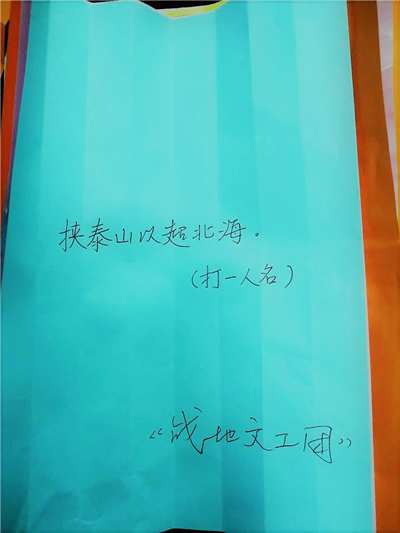 挟泰山以超北海。
(打一人名)
“战地文工团”